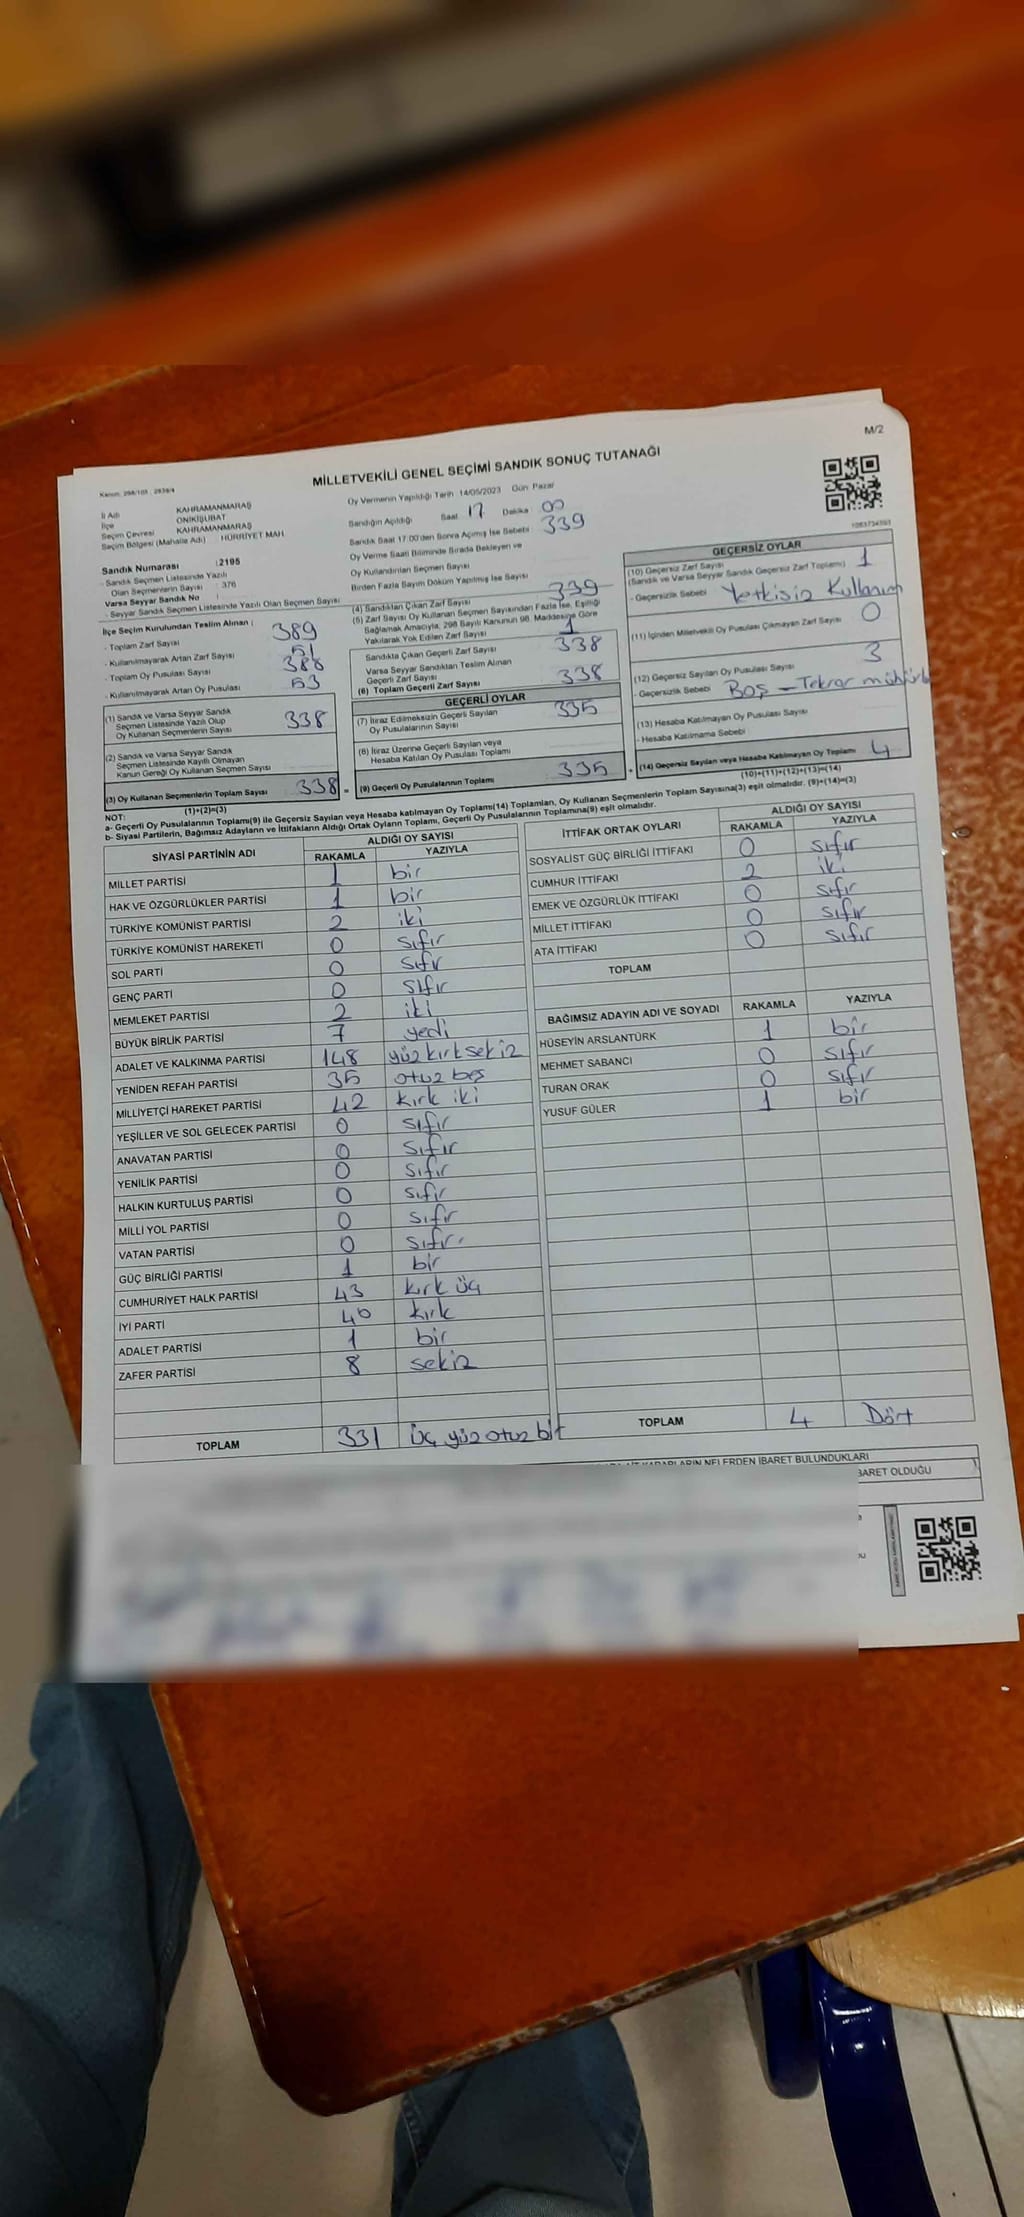 M/2
MİLLETVEKİLİ GENEL SEÇİMİ SANDIK SONUÇ TUTANAĞI
İl Adı KAHRAMANMARAŞ
İlçe ONİKİŞUBAT
Seçim Çevresi KAHRAMANMARAŞ
Seçim Bölgesi (Mahalle Adı) : HÜRRİYET MAH.
Oy Vermenin Yapıldığı Tarih :14/05/2023 Gün: Pazar
Sandığın Açıldığı Saat 17 Dakika : 00
Sandık Saat 17:00'den Sonra Açılmış İse Sebebi
Oy Verme Saati Bitiminde Sırada Bekleyen ve
Oy Kullandırılan Seçmen Sayısı
339
Birden Fazla Sayım Döküm Yapılmış İse Sayısı
Sandık Numarası :2195
- Sandık Seçmen Listesinde Yazılı
Olan Seçmenlerin Sayısı : 376
Varsa Seyyar Sandık No
- Seyyar Sandık Seçmen Listesinde Yazılı Olan Seçmen Sayısı
İlçe Seçim Kurulundan Teslim Alınan :
- Toplam Zarf Sayısı 389
- Kullanılmayarak Artan Zarf Sayısı 51
- Toplam Oy Pusulası Sayısı 388
- Kullanılmayarak Artan Oy Pusulası 53
(1) Sandık ve Varsa Seyyar Sandık
Seçmen Listesinde Yazılı Olup
Oy Kullanan Seçmenlerin Sayısı 338
(2) Sandık ve Varsa Seyyar Sandık
Seçmen Listesinde Kayıtlı Olmayan
Kanun Gereği Oy Kullanan Seçmen Sayısı
(3) Oy Kullanan Seçmenlerin Toplam Sayısı 338
(1)+(2)=(3)
(4) Sandıktan Çıkan Zarf Sayısı 339
(5) Zarf Sayısı Oy Kullanan Seçmen Sayısından Fazla İse, Eşitliği
Sağlamak Amacıyla, 298 Sayılı Kanunun 98. Maddesine Göre
Yakılarak Yok Edilen Zarf Sayısı 1
Sandıkta Çıkan Geçerli Zarf Sayısı 338
Varsa Seyyar Sandıktan Teslim Alınan
Geçerli Zarf Sayısı
(6) Toplam Geçerli Zarf Sayısı 338
GEÇERLİ OYLAR
(7) İtiraz Edilmeksizin Geçerli Sayılan
Oy Pusulalarının Sayısı 335
(8) İtiraz Üzerine Geçerli Sayılan veya
Hesaba Katılan Oy Pusulası Toplamı
(9) Geçerli Oy Pusulalarının Toplamı 335
GEÇERSİZ OYLAR
(10) Geçersiz Zarf Sayısı
(Sandık ve Varsa Seyyar Sandık Geçersiz Zarf Toplamı) 1
- Geçersizlik Sebebi Yetkisiz Kullanım
(11) İçinden Milletvekili Oy Pusulası Çıkmayan Zarf Sayısı 0
(12) Geçersiz Sayılan Oy Pusulası Sayısı 3
- Geçersizlik Sebebi Boş - Tekrar
(13) Hesaba Katılmayan Oy Pusulası Sayısı
- Hesaba Katılmama Sebebi
(14) Geçersiz Sayılan veya Hesaba Katılmayan Oy Toplamı 4
(10)+(11)+(12)+(13)=(14)
NOT:
a- Geçerli Oy Pusulalarının Toplamı(9) ile Geçersiz Sayılan veya Hesaba katılmayan Oy Toplamı(14) Toplamları, Oy Kullanan Seçmenlerin Toplam Sayısına(3) eşit olmalıdır. (9)+(14)=(3)
b- Siyasi Partilerin, Bağımsız Adayların ve İttifakların Aldığı Ortak Oyların Toplamı, Geçerli Oy Pusulalarının Toplamına(9) eşit olmalıdır.
SİYASİ PARTİNİN ADI ALDIĞI OY SAYISI
RAKAMLA YAZIYLA
MİLLET PARTİSİ 1 bir
HAK VE ÖZGÜRLÜKLER PARTİSİ 1 bir
TÜRKİYE KOMÜNİST PARTİSİ 2 iki
TÜRKİYE KOMÜNİST HAREKETİ 0 sıfır
SOL PARTİ 0 sıfır
GENÇ PARTİ 0 sıfır
MEMLEKET PARTİSİ 2 iki
BÜYÜK BİRLİK PARTİSİ 7 yedi
ADALET VE KALKINMA PARTİSİ 148 yüz kırk sekiz
YENİDEN REFAH PARTİSİ 35 otuz beş
MİLLİYETÇİ HAREKET PARTİSİ 42 kırk iki
YEŞİLLER VE SOL GELECEK PARTİSİ 0 sıfır
ANAVATAN PARTİSİ 0 sıfır
YENİLİK PARTİSİ 0 sıfır
HALKIN KURTULUŞ PARTİSİ 0 sıfır
MİLLİ YOL PARTİSİ 0 sıfır
VATAN PARTİSİ 0 sıfır
GÜÇ BİRLİĞİ PARTİSİ 1 bir
CUMHURİYET HALK PARTİSİ 43 kırk üç
İYİ PARTİ 40 kırk
ADALET PARTİSİ 1 bir
ZAFER PARTİSİ 8 sekiz
TOPLAM 331 üç yüz otuz bir
İTTİFAK ORTAK OYLARI ALDIĞI OY SAYISI
RAKAMLA YAZIYLA
SOSYALİST GÜÇ BİRLİĞİ İTTİFAKI 0 sıfır
CUMHUR İTTİFAKI 2 iki
EMEK VE ÖZGÜRLÜK İTTİFAKI 0 sıfır
MİLLET İTTİFAKI 0 sıfır
ATA İTTİFAKI 0 sıfır
TOPLAM
BAĞIMSIZ ADAYIN ADI VE SOYADI RAKAMLA YAZIYLA
HÜSEYİN ARSLANTÜRK 1 bir
MEHMET SABANCI 0 sıfır
TURAN ORAK 0 sıfır
YUSUF GÜLER 1 bir
TOPLAM 4 Dört
NELERDEN İBARET BULUNDUKLARI
BARET OLDUĞU